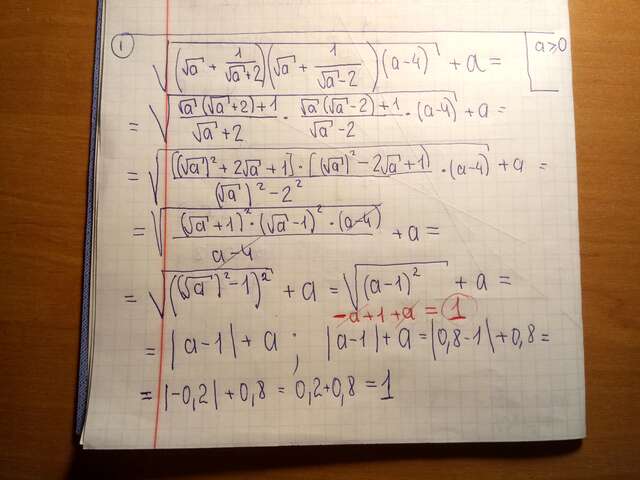 ① √((√a + 1/(√a+2))(√a + 1/(√a−2))(a−4)) + a = a≥0
= √((√a(√a+2)+1)/(√a+2) · (√a(√a−2)+1)/(√a−2) · (a−4)) + a =
= √(([(√a)²+2√a+1]·[(√a)²−2√a+1])/((√a)²−2²) · (a−4)) + a =
= √(((√a+1)²·(√a−1)²·(a−4))/(a−4)) + a =
= √(((√a)²−1)²) + a = √((a−1)²) + a =
−a+1+a = 1
= |a−1| + a ; |a−1| + a = |0,8−1| + 0,8 =
= |−0,2| + 0,8 = 0,2+0,8 = 1